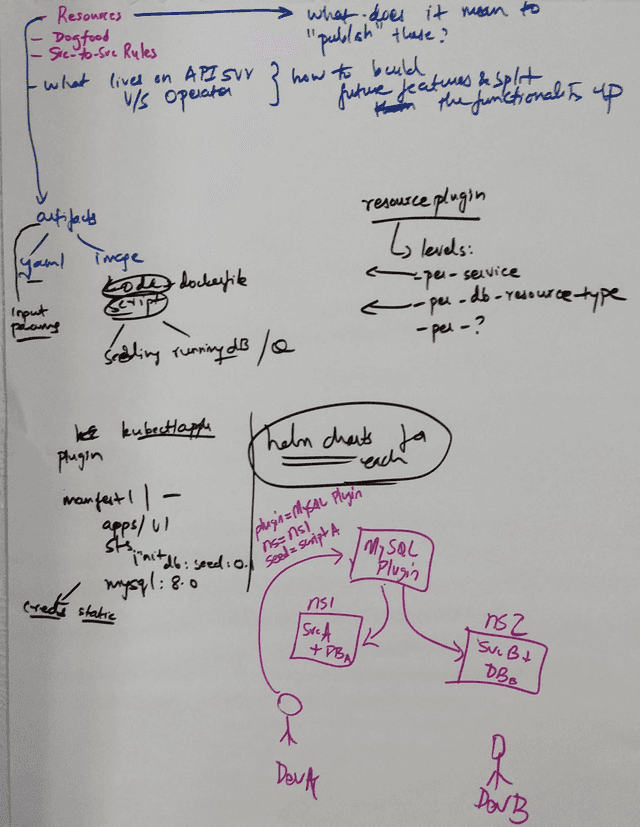 - Resources
what does it mean to
"publish" these?
- Dogfood
- Svc-to-Svc Rules
- what lives on API SVR
V/S Operator
how to build
future features & split
the functionality up
artifacts
yaml
image
input
params
code - dockerfile
script
seeding running DB / Q
resource plugin
levels:
- per - service
- per - db - resource - type
- per - ?
kubectl apply
plugin
manifest 1 | —
apps/v1
sts
init db : seed : 0.1
mysql : 8.0
creds static
helm charts for
each
plugin = MySQL Plugin
ns = ns1
seed = script A
MySQL
Plugin
ns1
Svc A
+ DBA
ns2
Svc B +
DBB
Dev A
Dev B